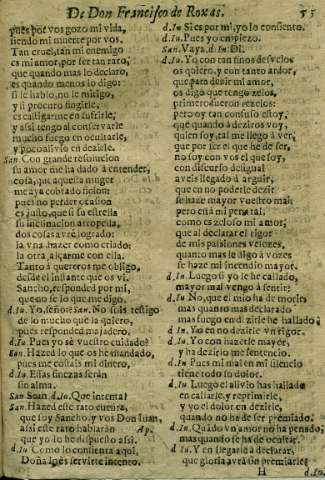 De Don Francisco de Roxas. 55
pues por vos gozo mi vida,
siendo mi muerte por vos.
Tan cruel, tan mi enemigo
es mi amor, por ser tan raro,
que quando mas lo declaro,
es quando menos lo digo:
si le hablo, no le mitigo,
y si procuro fingirle,
es castigarme en sufrirle,
y assi tengo al conservarle
mucho fuego en ocultarle,
y poco alivio en dezirle.
San. Con grande resolucion
su amor me ha dado à entender,
cosa, que aquella muger
me aya cobrado
pues no perder ocasion
es justo, que si su estrella
su inclinacion atropella,
dos cosas avrè logrado:
la vna hazer como criado;
la otra, alçarme con ella.
Tanto à quereros me obligo,
desde el instante que os vi.
Sancho, responded por mi,
que no se lo que me digo.
d. Iu. Yo, señor? San. No sois testigo
de lo mucho que la quiero,
pues responded majadero.
d. Iu. Pues yo sè vuestro cuidado?
San. Hazed lo que os he mandado,
pues me costais mi dinero.
d. Iu. Essas finezas seràn
sin alma.
San Soan d. Iu. Que intenta?
San. Hazed este rato cuenta,
que soy Sancho, y vos Don Iuan,
assi este rato hablaràn Ap.
que yo lo he dispuesto assi.
d. Iu. Como lo consienta aqui,
Doña Inès servirte intento.
d. In. Si es por mi, yo lo consiento.
d. Iu. Pues yo empiezo.
San. Vaya. d. In. Di.
d. Iu. Yo con tan finos desvelos
os quiero, y con tanto ardor,
que para dezir mi amor,
os digo que tengo zelos,
primero fueron rezelos:
pero oy tan confuso estoy,
que quando à deziros voy,
quien soy, tal me llego à ver,
que por ser el que he de ser,
no soy con vos el que soy,
con discurso desigual
aveis llegado à arguir,
que en no poderle dezir
se haze mayor vuestro mal;
pero està mi pena tal,
como es zeloso mi amor;
que al declarar el rigor
de mis passiones velozes,
quanto mas le digo à vozes
se haze mi incendio mayor.
d. In. Luego si yo le he callado,
mayor mal vengo à sentir?
d. Iu. No, que el mio ha de morir
mas quanto mas declarado
mas fuego en dezirle he hallado
d. In. Yo en no dezirle vn rigor.
d. Iu. Yo con hazerle mayor,
y ha dezirlo me sentencio.
d. In. Pues mi mal en mi silencio
tiene todo su dolor.
d. Iu. Luego el alivio has hallado
en callarle, y reprimirle,
y yo el dolor en dezirle,
quando no ha de ser premiado.
d. In. Quãdo vn amor no ha penado,
mas quando se ha de ocultar.
d. Iu. Y en llegarle à declarar,
que gloria avrà sin premiarle?
H d. In.